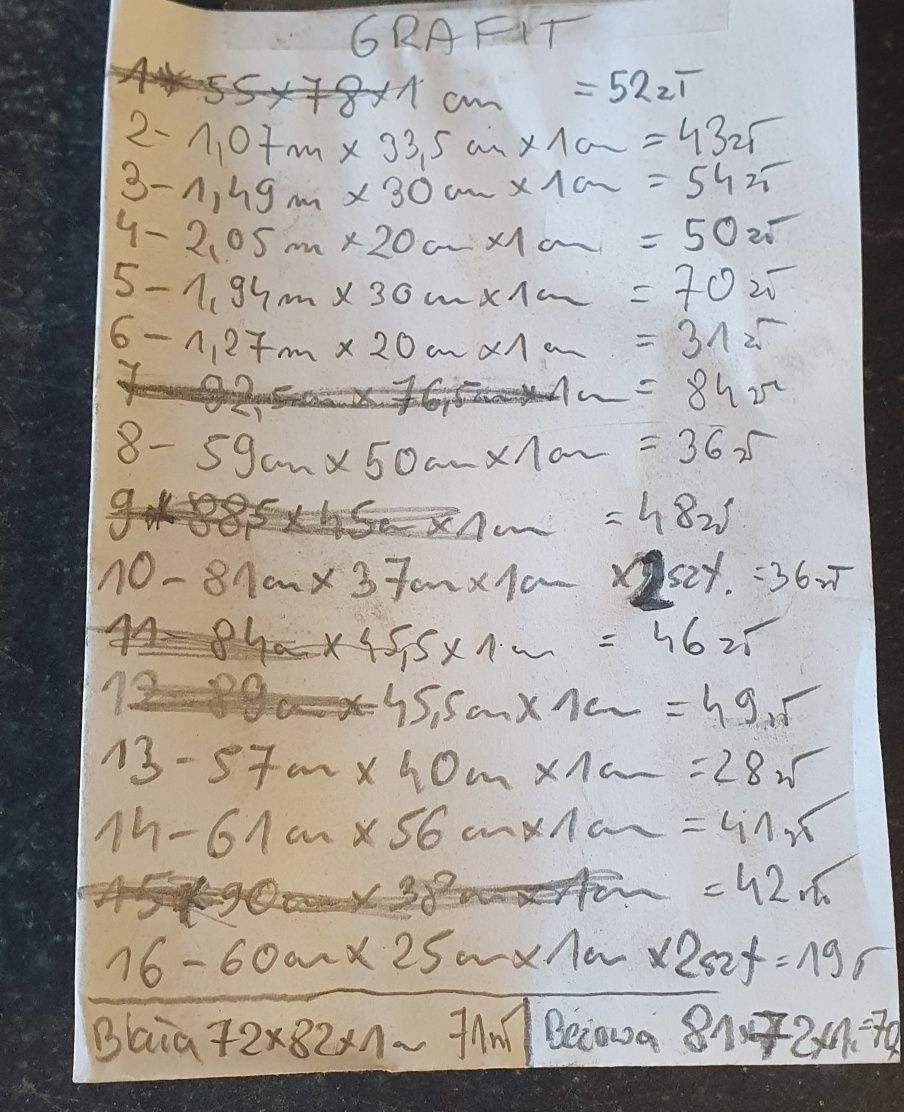 GRAFIT
1 55x78x1 cm = 52 zł
2- 1,07m x 33,5 cm x 1cm = 43 zł
3- 1,49m x 30cm x 1cm = 54 zł
4- 2,05m x 20cm x 1cm = 50 zł
5- 1,94m x 30cm x 1cm = 70 zł
6- 1,27m x 20cm x 1cm = 31 zł
7- 92,5cm x 76,5cm x 1cm = 84 zł
8- 59cm x 50cm x 1cm = 36 zł
9 88,5 x 45cm x 1cm = 48 zł
10- 81cm x 37cm x 1cm x 2szt. = 36 zł
11- 84cm x 45,5 x 1cm = 46 zł
12 89cm x 45,5cm x 1cm = 49 zł
13- 57cm x 40cm x 1cm = 28 zł
14- 61cm x 56cm x 1cm = 41 zł
15 90cm x 38cm x 1cm = 42 zł
16- 60cm x 25cm x 1cm x 2szt = 19 zł
72x82x1cm 71 zł | Beżowa 81x72x1 = 70